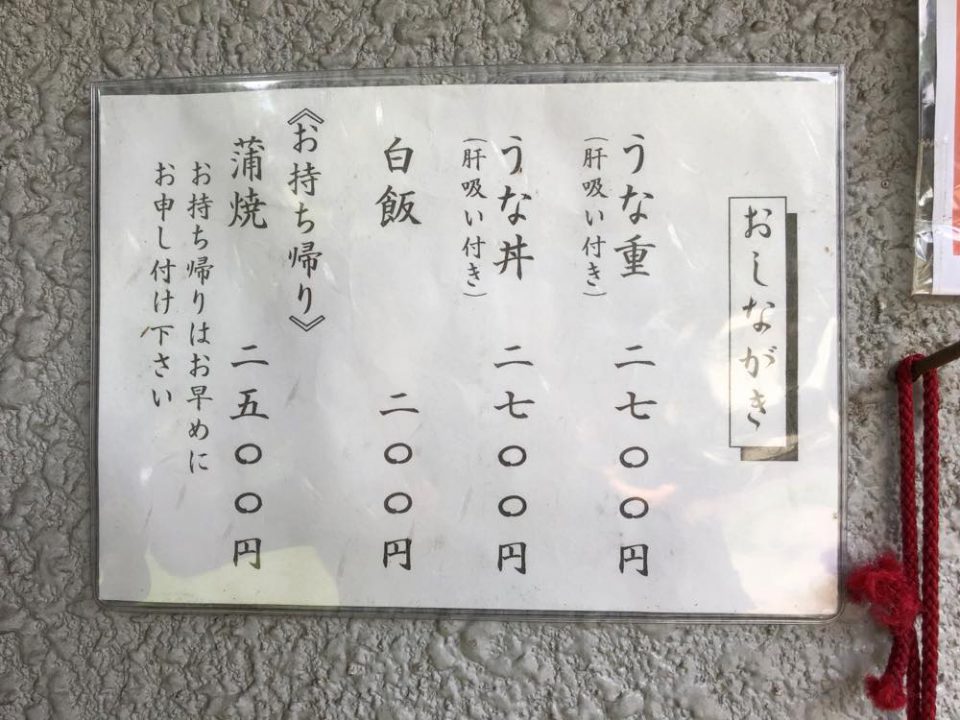 おしながき
うな重 二七〇〇円
(肝吸い付き)
うな丼 二七〇〇円
(肝吸い付き)
白飯 二〇〇円
《お持ち帰り》
蒲焼 二五〇〇円
お持ち帰りはお早めに
お申し付け下さい